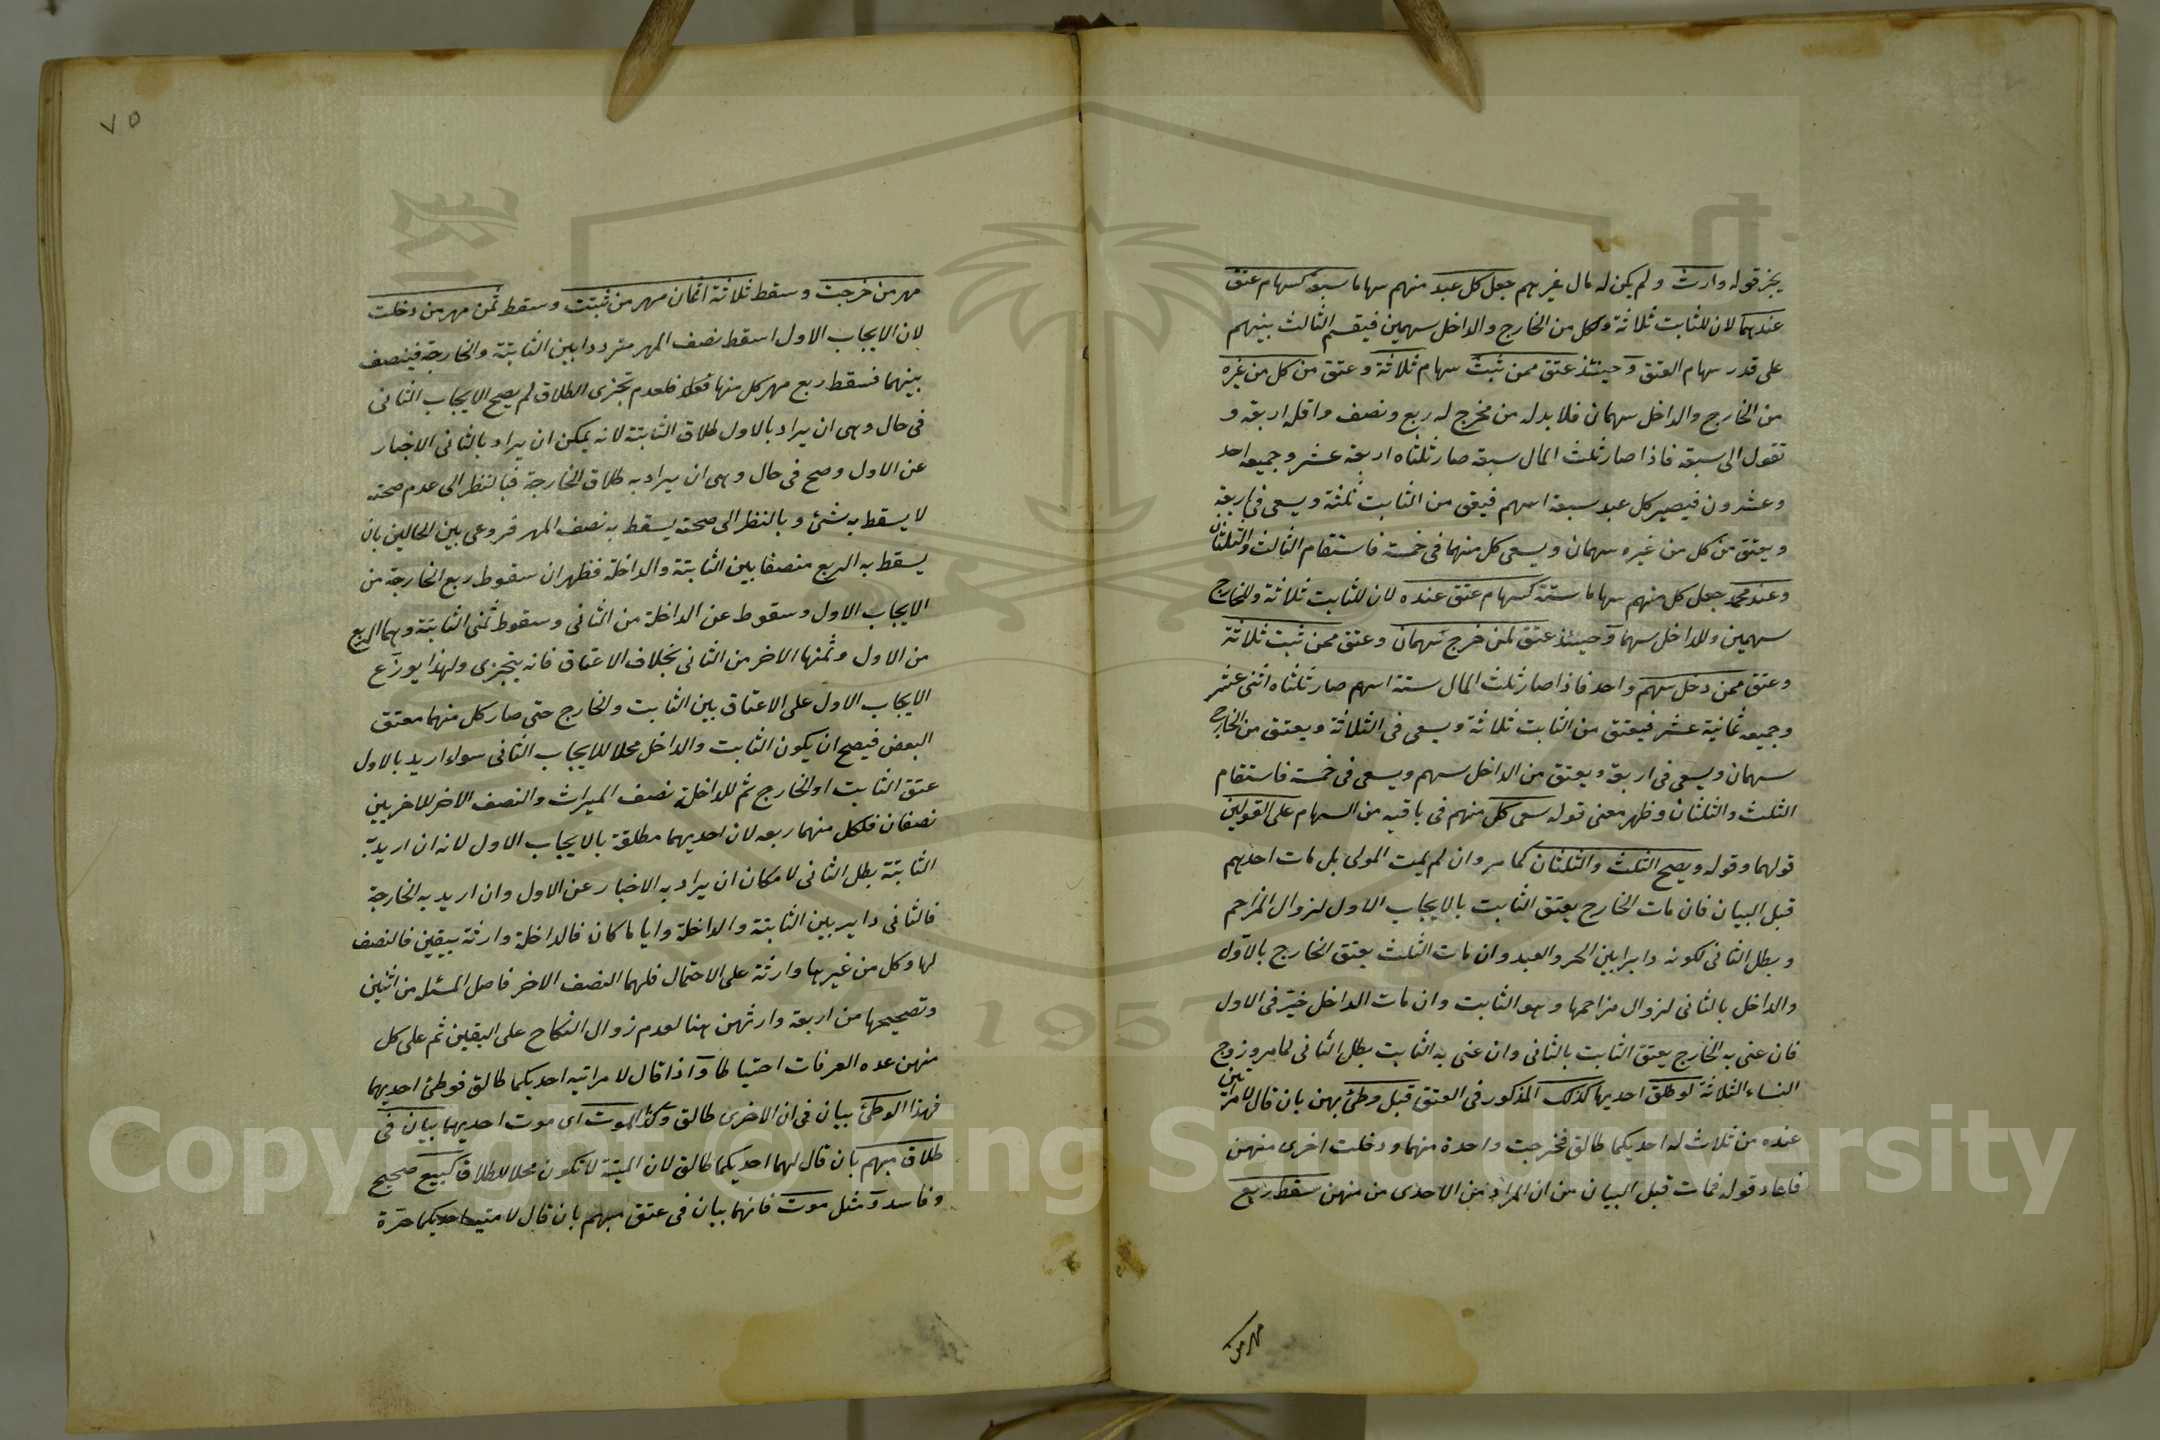 يجز قوله وارث ولم يكن له مال غيرهم جعل كل عبد منهم سهاما سبعة كسهام عتق
عندهما لان للثابت ثلاثة ولكل من الخارج والداخل سهمين فيقسم الثالث بينهم
على قدر سهام العتق وحينئذ عتق ممن ثبت سهام ثلاثة وعتق من كل من غيره
من الخارج والداخل سهمان فلا بد له من مخرج له ربع ونصف واقله اربعة و
تقول الى سبعة فاذا صار ثلث المال سبعة صار ثلثاه اربعة عشر وجميعه احد
وعشرون فيصير كل عبد سبعة اسهم فيعتق من الثابت ثلثة ويسعى في اربعة
ويعتق من كل من غيره سهمان ويسعى كل منهما فى خمسة فاستقام الثالث والثلثان
وعند محمد جعل كل منهم سهاما ستة كسهام عتق عنده لان للثابت ثلاثة وللخارج
سهمين وللداخل سهما وحينئذ عتق لمن خرج سهمان وعتق ممن ثبت ثلاثة
وعتق ممن دخل سهم واحد فاذا صار ثلث المال ستة اسهم صار ثلثاه اثنى عشر
وجميعه ثمانية عشر فيعتق من الثابت ثلاثة ويسعى فى الثلاثة ويعتق من الخارج
سهمان ويسعى فى اربعة ويعتق من الداخل سهم ويسعى فى خمسة فاستقام
الثلث والثلثان وظهر معنى قوله سعى كل منهم فى باقيه من السهام على القولين
قولهما وقوله ويصح الثلث والثلثان كما مر وان لم يمت المولى بل مات احدهم
قبل البيان فان مات الخارج يعتق الثابت بالايجاب الاول لزوال المزاحم
وبطل الثانى لكونه دايرا بين الحر والعبد وان مات الثلث يعتق الخارج بالاول
والداخل بالثانى لزوال مزاحمها وهو الثابت وان مات الداخل خيّر فى الاول
فان عنى به الخارج يعتق الثابت بالثانى وان عنى به الثابت بطل الثانى لما مر وزوج
النساء الثلاثة لو طلق احديها كذلك المذكور فى العتق قبل وطئ بهن بان قال لامراتين
عنده من ثلاث له احديكما طالق فخرجت واحدة منهما ودخلت اخرى منهن
فاعاد قوله فمات قبل البيان من ان المراد من الاحدى من منهن سقط ربع
مهر من
٧٥
مهر من خرجت وسقط ثلاثة اثمان مهر من ثبتت وسقط ثمن مهر من دخلت
لان الايجاب الاول اسقط نصف المهر مترددا بين الثابتة والخارجة فينصف
بينهما فسقط ربع مهر كل منهما فلعدم تجزى الطلاق لم يصح الايجاب الثانى
فى حال وهى ان يراد بالاول طلاق الثابتة لانه يمكن ان يراد بالثانى الاخبار
عن الاول وصح فى حال وهى ان يراد به طلاق الخارجة فبالنظر الى عدم صحته
لا يسقط به شئ وبالنظر الى صحته يسقط به نصف المهر فروعى بين الحالين بان
يسقط به الربع منصفا بين الثابتة والداخلة فظهر ان سقوط ربع الخارجة من
الايجاب الاول وسقوط عن الداخلة من الثانى وسقوط ثمنى الثابتة وهما الربع
من الاول وثمنها الاخر من الثانى بخلاف الاعتاق فانه يتجزى ولهذا يوزّع
الايجاب الاول على الاعتاق بين الثابت والخارج حتى صار كل منهما معتق
البعض فيصح ان يكون الثابت والداخل محلا للايجاب الثانى سواء اريد بالاول
عتق الثابت او الخارج ثم للداخلة نصف الميراث والنصف الاخر للاخريين
نصفان فلكل منهما ربعه لان احديهما مطلقة بالايجاب الاول لانه ان اريد به
الثابتة بطل الثانى لامكان ان يراد به الاخبار عن الاول وان اريد به الخارجة
فالثانى داير بين الثابتة والداخلة وايا ما كان فالداخلة وارثة بيقين فالنصف
لها وكل من غيرها وارثة على الاحتمال فلهما النصف الاخر فاصل المسئلة من اثنين
وتصحيحها من اربعة وارثهن هنا لعدم زوال النكاح على اليقين ثم على كل
منهن عده العرفات احتياطا واذا قال لامراتيه احديكما طالق فوطئ احديهما
فهذا الوطئ بيان فى ان الاخرى طالق وكذا الموت اى موت احديهما بيان فى
طلاق مبهم بان قال لهما احديكما طالق لان الميتة لا تكون محلا للطلاق كبيع صحيح
وفاسد ومثل موت فانهما بيان فى عتق مبهم بان قال لامتيه احديكما حرة